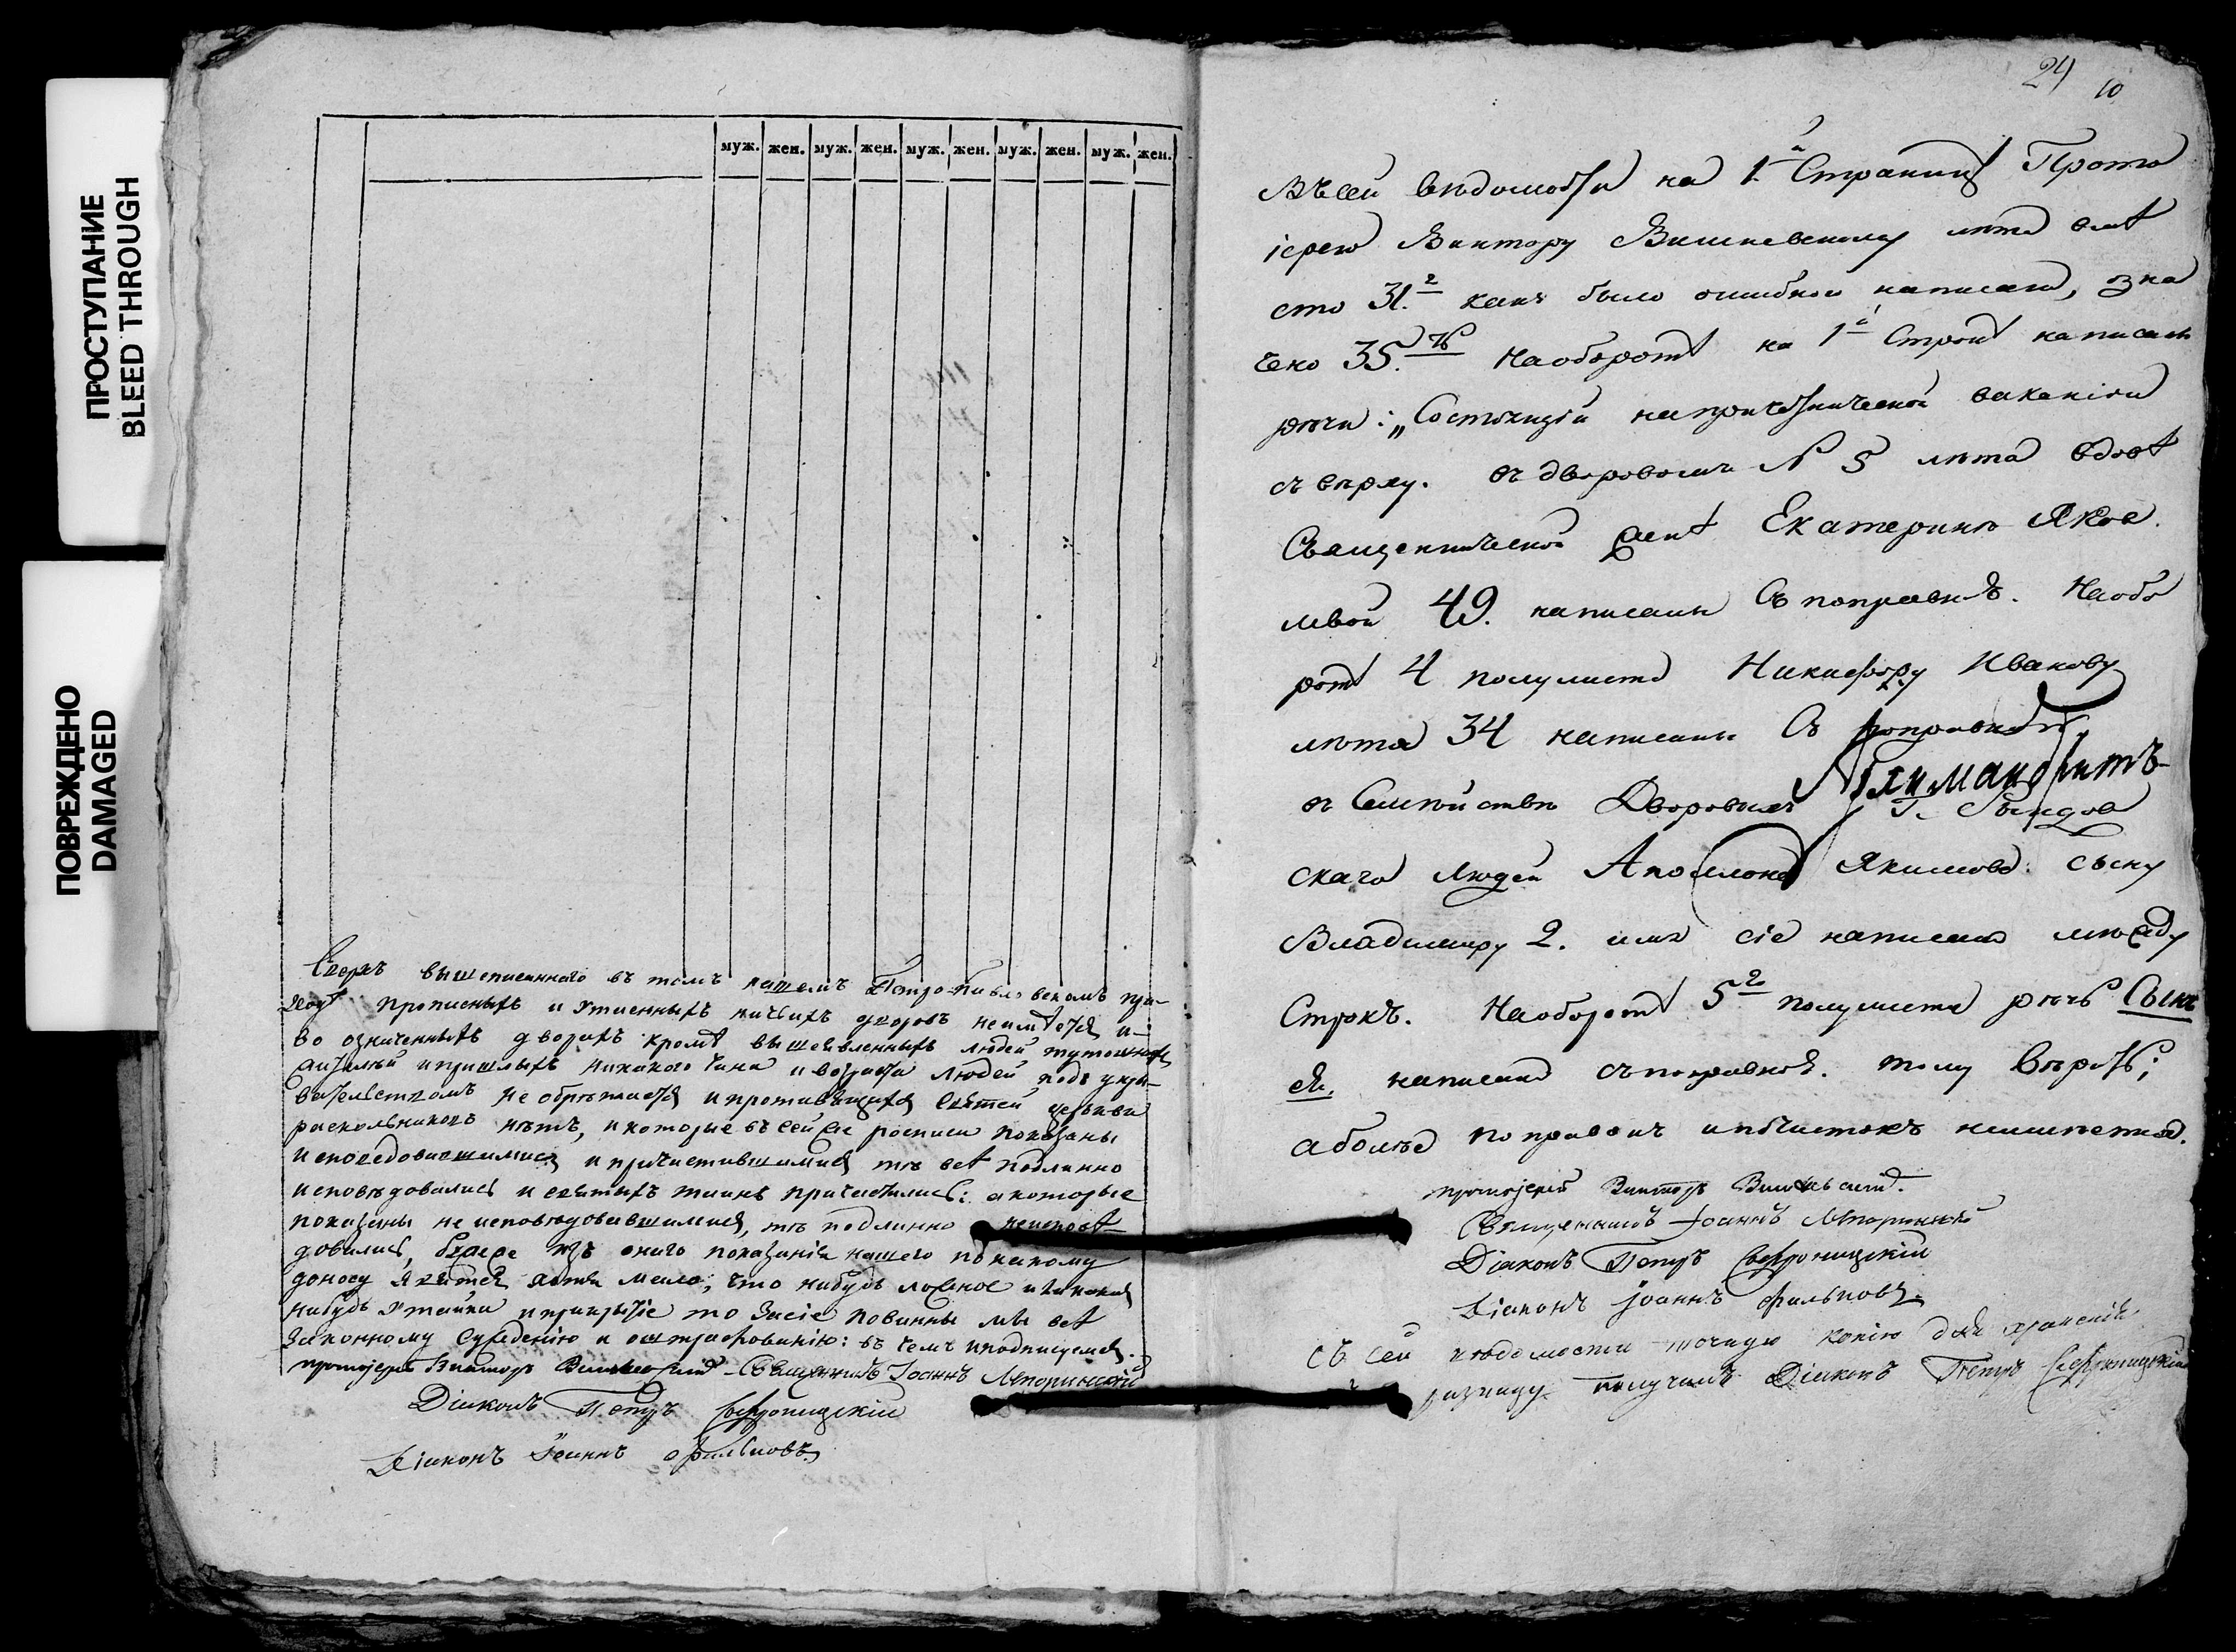 ПРОСТУПАНИЕ
BLEED THROUGH
ПОВРЕЖДЕНО
DAMAGED
муж. жен. муж. жен. муж. жен. муж. жен. муж. жен.
Сверхъ вышеписаннаго въ томъ нашемъ Петро-Павловскомъ при-
ходѣ прописныхъ и утаенныхъ ничьихъ дворовъ неимѣется и
во означенныхъ дворахъ кромѣ вышеявленныхъ людей тутошнихъ
жителей и пришлыхъ никакого чина и возраста людей подъ укры-
вательствомъ не обрѣтается и противящихся святей церкви
раскольниковъ нѣтъ, и которые въ сей же росписи показаны
исповедовавшимися и причастившимися тѣ всѣ подлинно
исповѣдовались и святыхъ таинъ причастились: а которые
показаны не исповѣдовавшимися, тѣ подлинно неисповѣ-
довались, буде же изъ онаго показанія нашего по какому
доносу явится хотя мало, что нибудь ложное и какая
нибудь утайка и прикрытіе то за сіе повинны мы всѣ
законному сужденію и оштрафованію: въ чемъ и подписуемся.
протоіерей Викторъ Вишневскій Священникъ Іоаннъ
Діаконъ Петръ
Діаконъ Іоаннъ Фильповъ
24 10
Въ сей вѣдомости на 1й Страницѣ Прото
іерею Виктору Вишневскому лѣта вмѣ
сто 31го какъ было ошибкой написано, зна
чено 35.ть На оборотѣ на 1й Строкѣ написаны
рѣчи: „Состоящій на причетнической вакансіи
съ верху. въ дворовомъ N 5 лѣта вдовѣ
Священнической женѣ Екатеринѣ Яков
левой 49. написаны Съ поправкѣ. На обо
ротѣ 4 полулиста Никифору Иванову
лѣта 34 написаны Съ поправкѣ,
Архимандритъ
въ Семействѣ Дворовыхъ Г.
скаго людей Аполлона Якимова сыну
Владимиру 2. имя сіе написано между
Строкъ. На оборотѣ 5го полулиста рѣчь Сынъ
ея. написано съ поправкой. тому вѣрить;
а болѣе поправокъ и почистокъ неимѣется.
протоіерей Викторъ Вишневскій.
Священникъ Іоаннъ
Діаконъ Петръ
Діаконъ Іоаннъ Фильповъ
Съ сей вѣдомости точную копію для храненія
въ ризницу получилъ Діаконъ Петръ